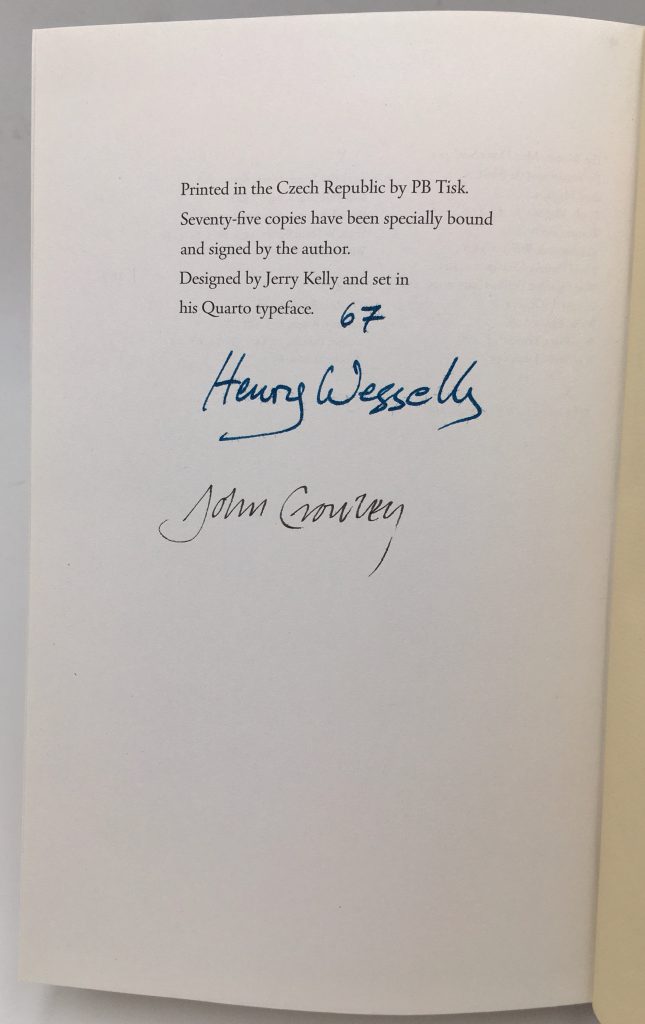 Printed in the Czech Republic by PB Tisk.
Seventy-five copies have been specially bound
and signed by the author.
Designed by Jerry Kelly and set in
his Quarto typeface. 67
Henry Wessells
John Crowley